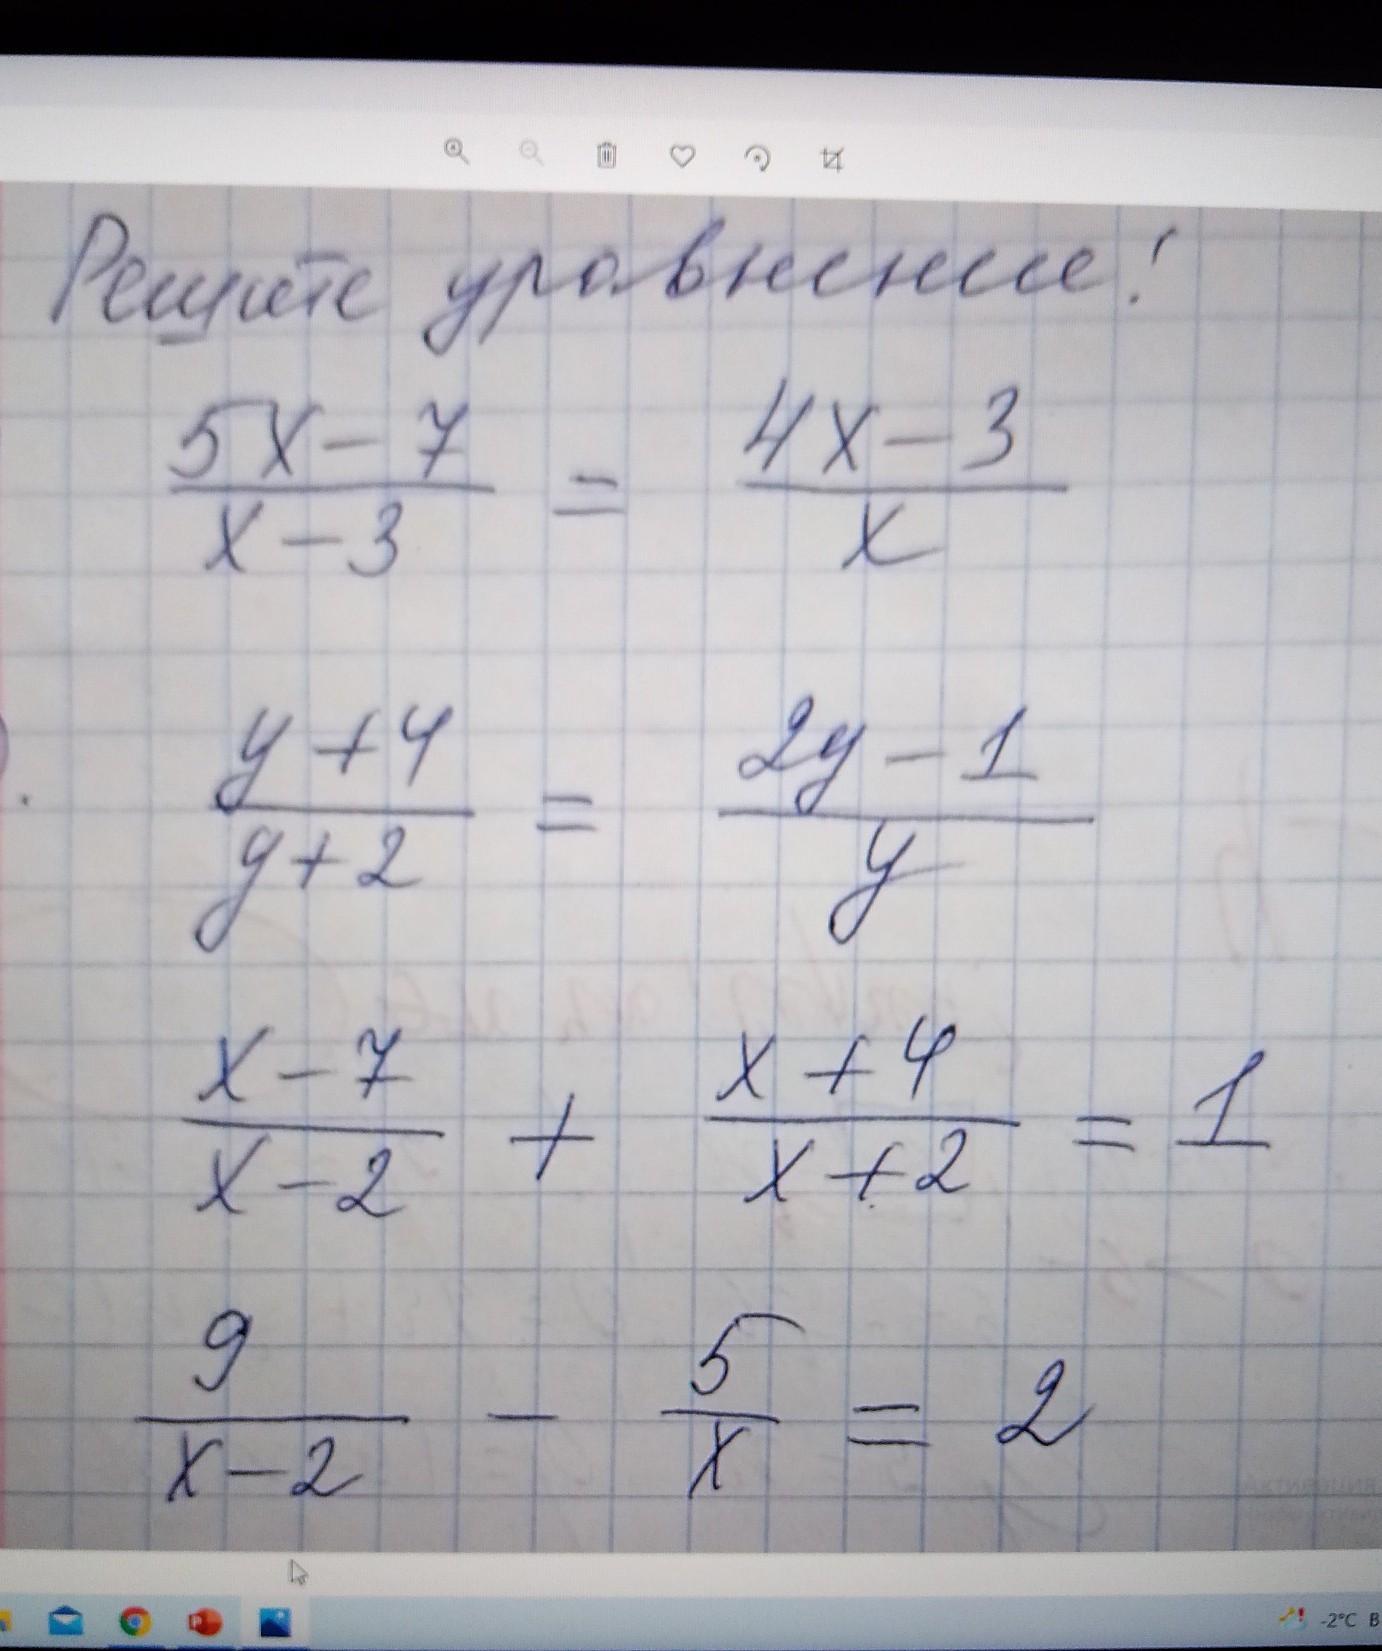 Решите уравнение!
5x - 7 / x - 3 = 4x - 3 / x
y + 4 / y + 2 = 2y - 1 / y
x - 7 / x - 2 + x + 4 / x + 2 = 1
9 / x - 2 - 5 / x = 2
-2°C В